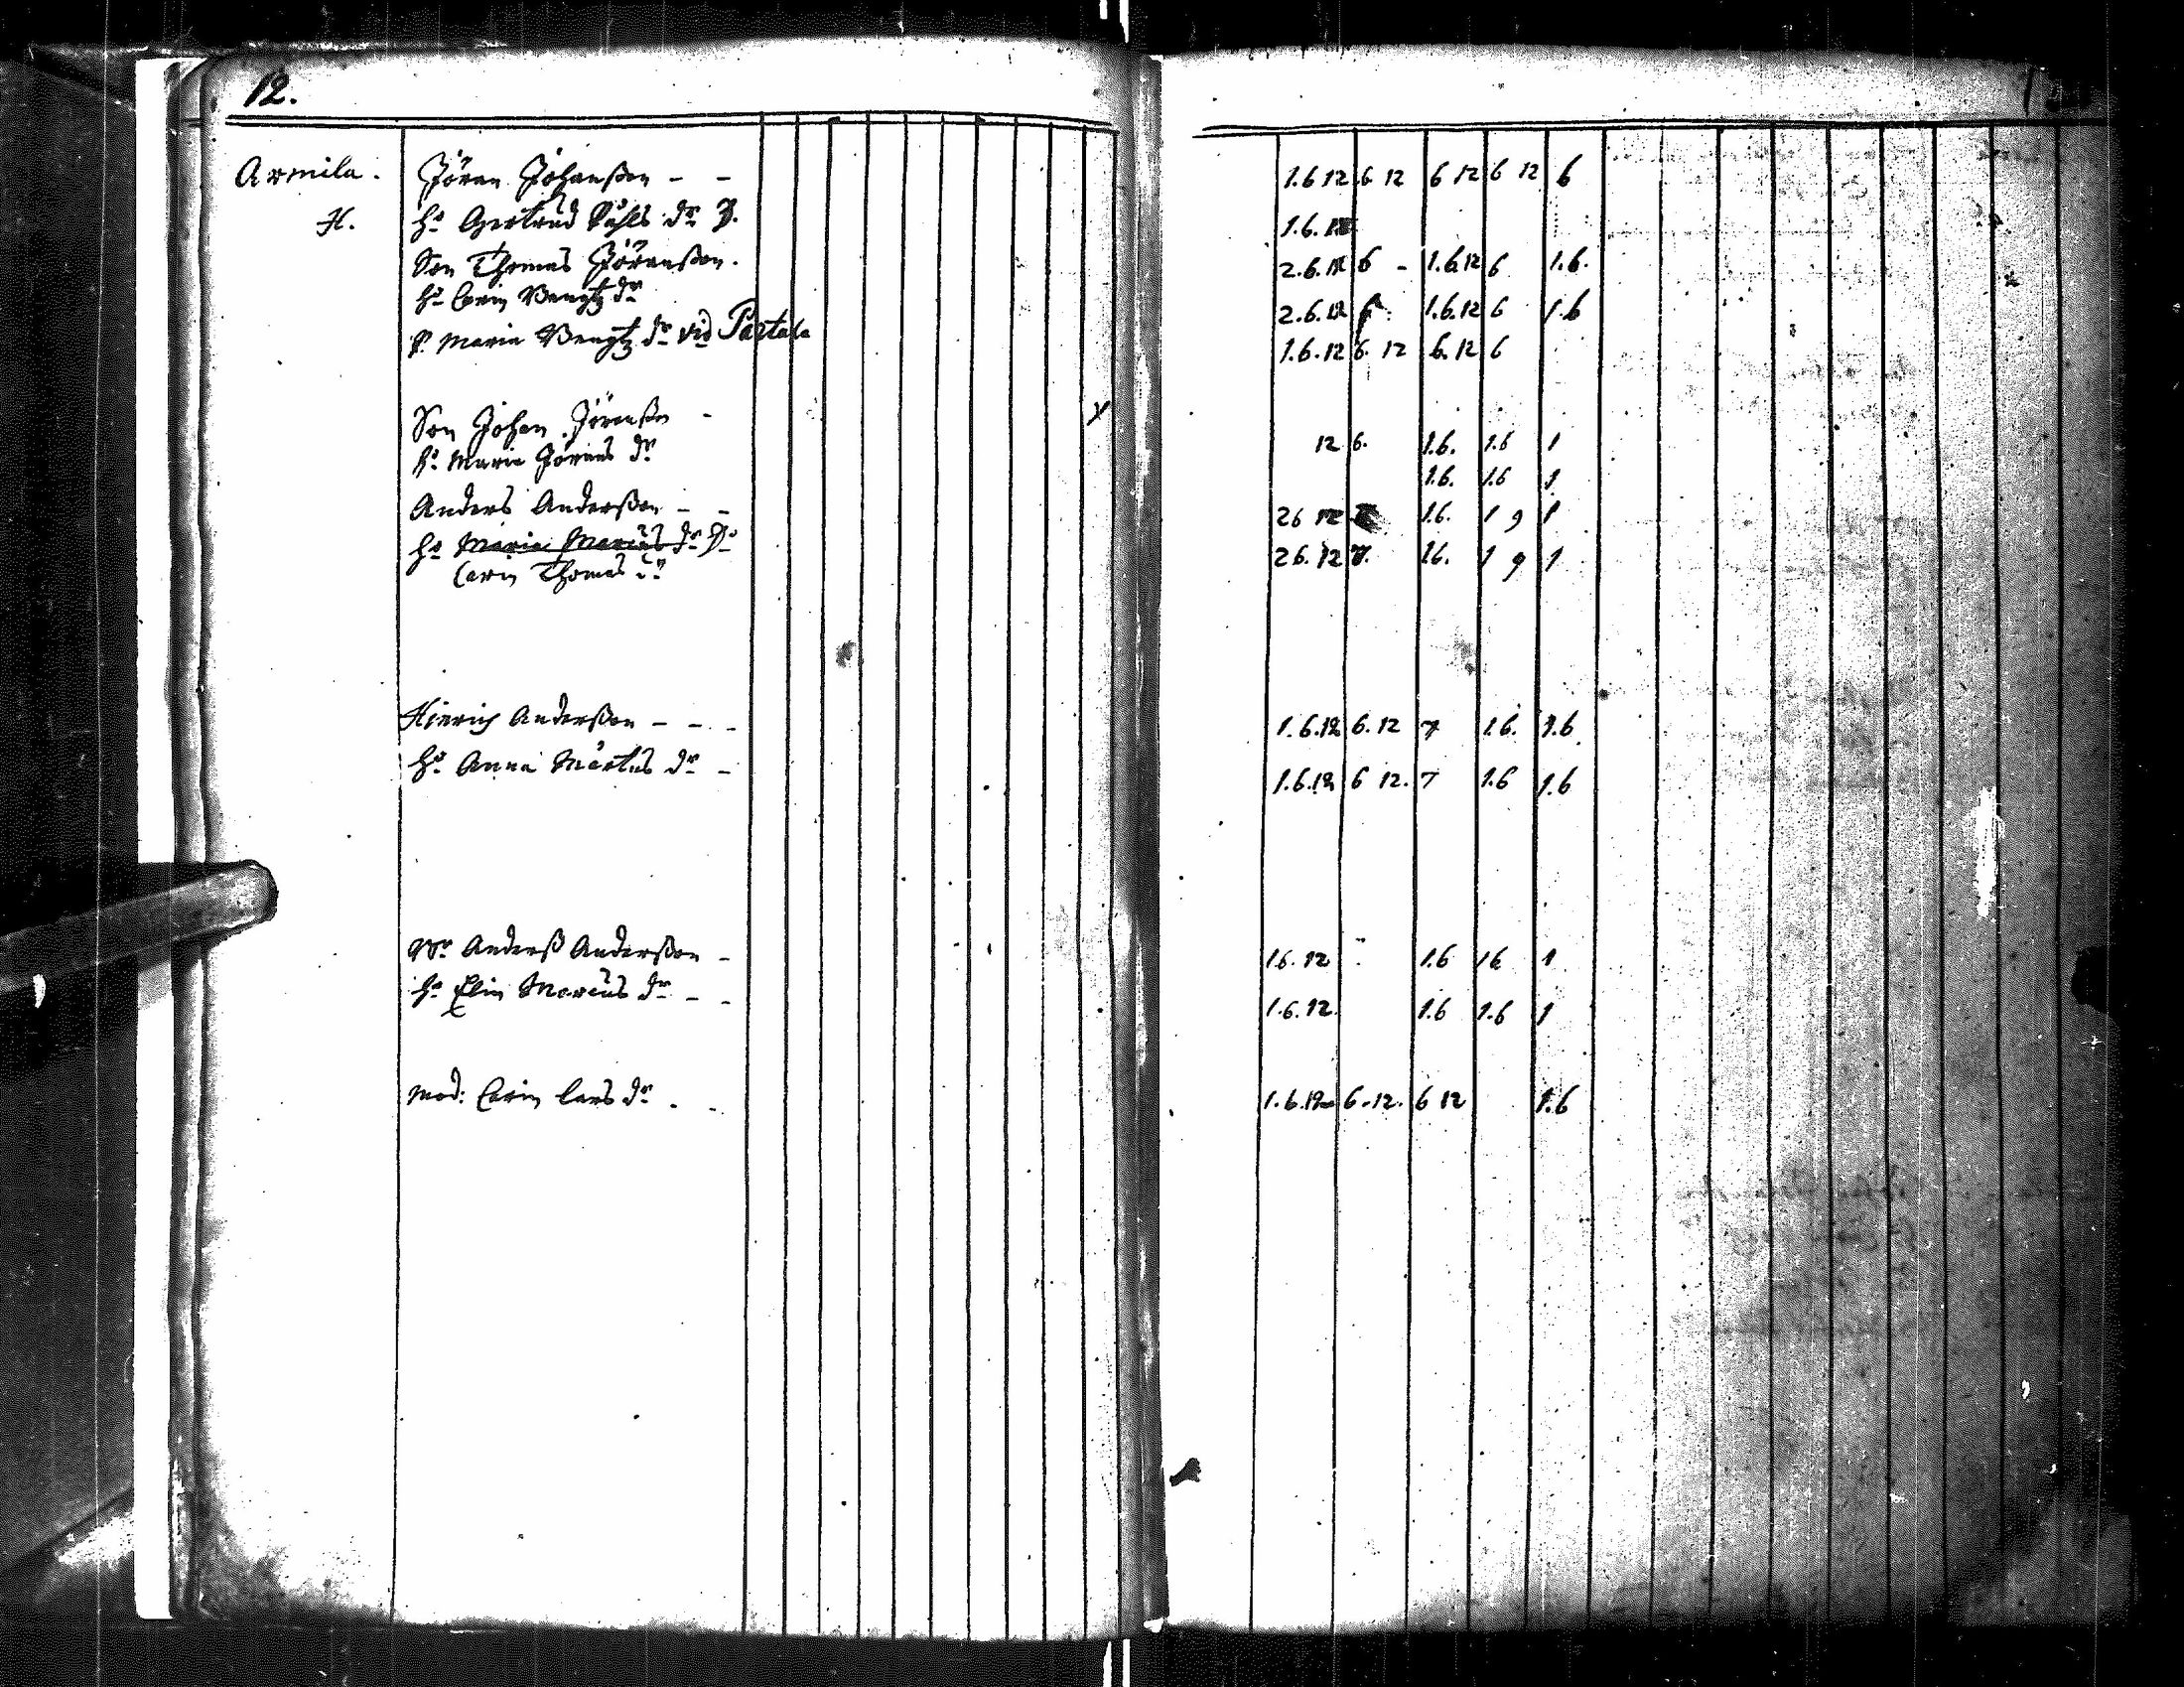 12.
Armila. Jöran Johanßon - - 1.6 12 6 12 6 12 6 12 6
H. H: Gertrud Påhls dr 1.6.
Son Thomas Jöranßon. 2.6.12 6 - 1.6.12 6 1.6.
H: Carin Bengtz dr 2.6.12 1.6.12 6 1.6
P. Maria Bengtz dr vid Partala 1.6.12 6. 12 6.12 6
Son Johan Jöranßon - 12 6. 1.6. 1.6 1
H: Maria Jörans dr 1.6. 1.6 1
Anders Anderßon - - 26 12 1.6. 1 9 1
H: Maria Marcus dr 26.12 7. 16. 1 9 1
Carin Thomas dr
Hinrich Anderßon - - - 1.6.12 6.12 7 1.6. 1.6
H: Anna Mårtens dr - 1.6.12 6 12. 7 1.6 1.6
Anderß Anderßon - 1.6.12 1.6 16 1
H: Elin Marcus dr - - 1.6.12. 1.6 1.6 1
Mod: Carin Lars dr - - 1.6.12 6.12. 6 12 1.6